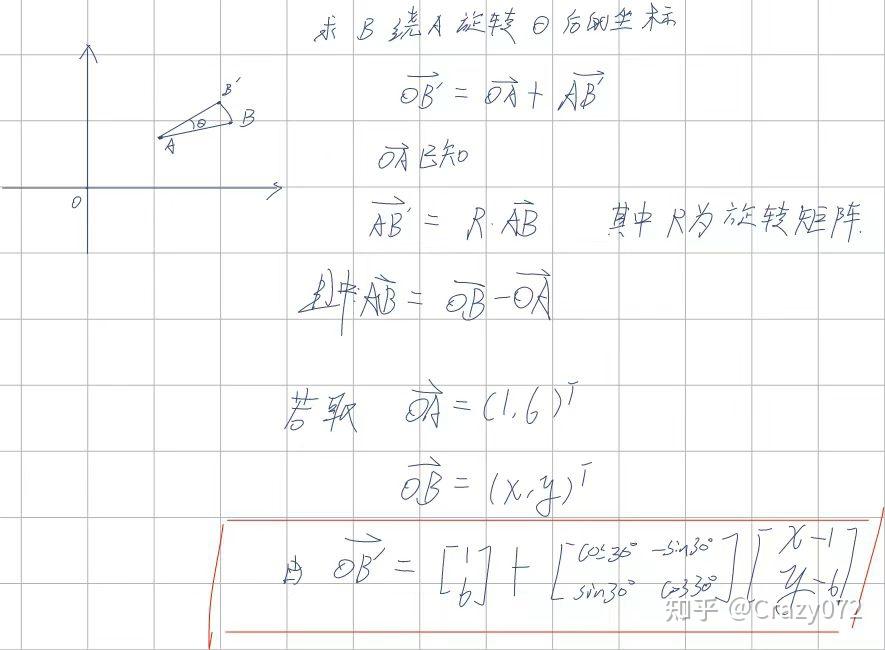 求 B 绕 A 旋转 θ 后的坐标
B'
θ
B
A
O
$\overrightarrow{OB'} = \overrightarrow{OA} + \overrightarrow{AB'}$
$\overrightarrow{OA}$ 已知
$\overrightarrow{AB'} = R \cdot \overrightarrow{AB}$ 其中 R为旋转矩阵.
其中: $\overrightarrow{AB} = \overrightarrow{OB} - \overrightarrow{OA}$
若取 $\overrightarrow{OA} = (1, 6)^T$
$\overrightarrow{OB} = (x, y)^T$
$\overrightarrow{OB'} = \begin{bmatrix} 1 \\ 6 \end{bmatrix} + \begin{bmatrix} \cos 30° & -\sin 30° \\ \sin 30° & \cos 30° \end{bmatrix} \begin{bmatrix} x-1 \\ y-6 \end{bmatrix}$
知乎 @Crazy072